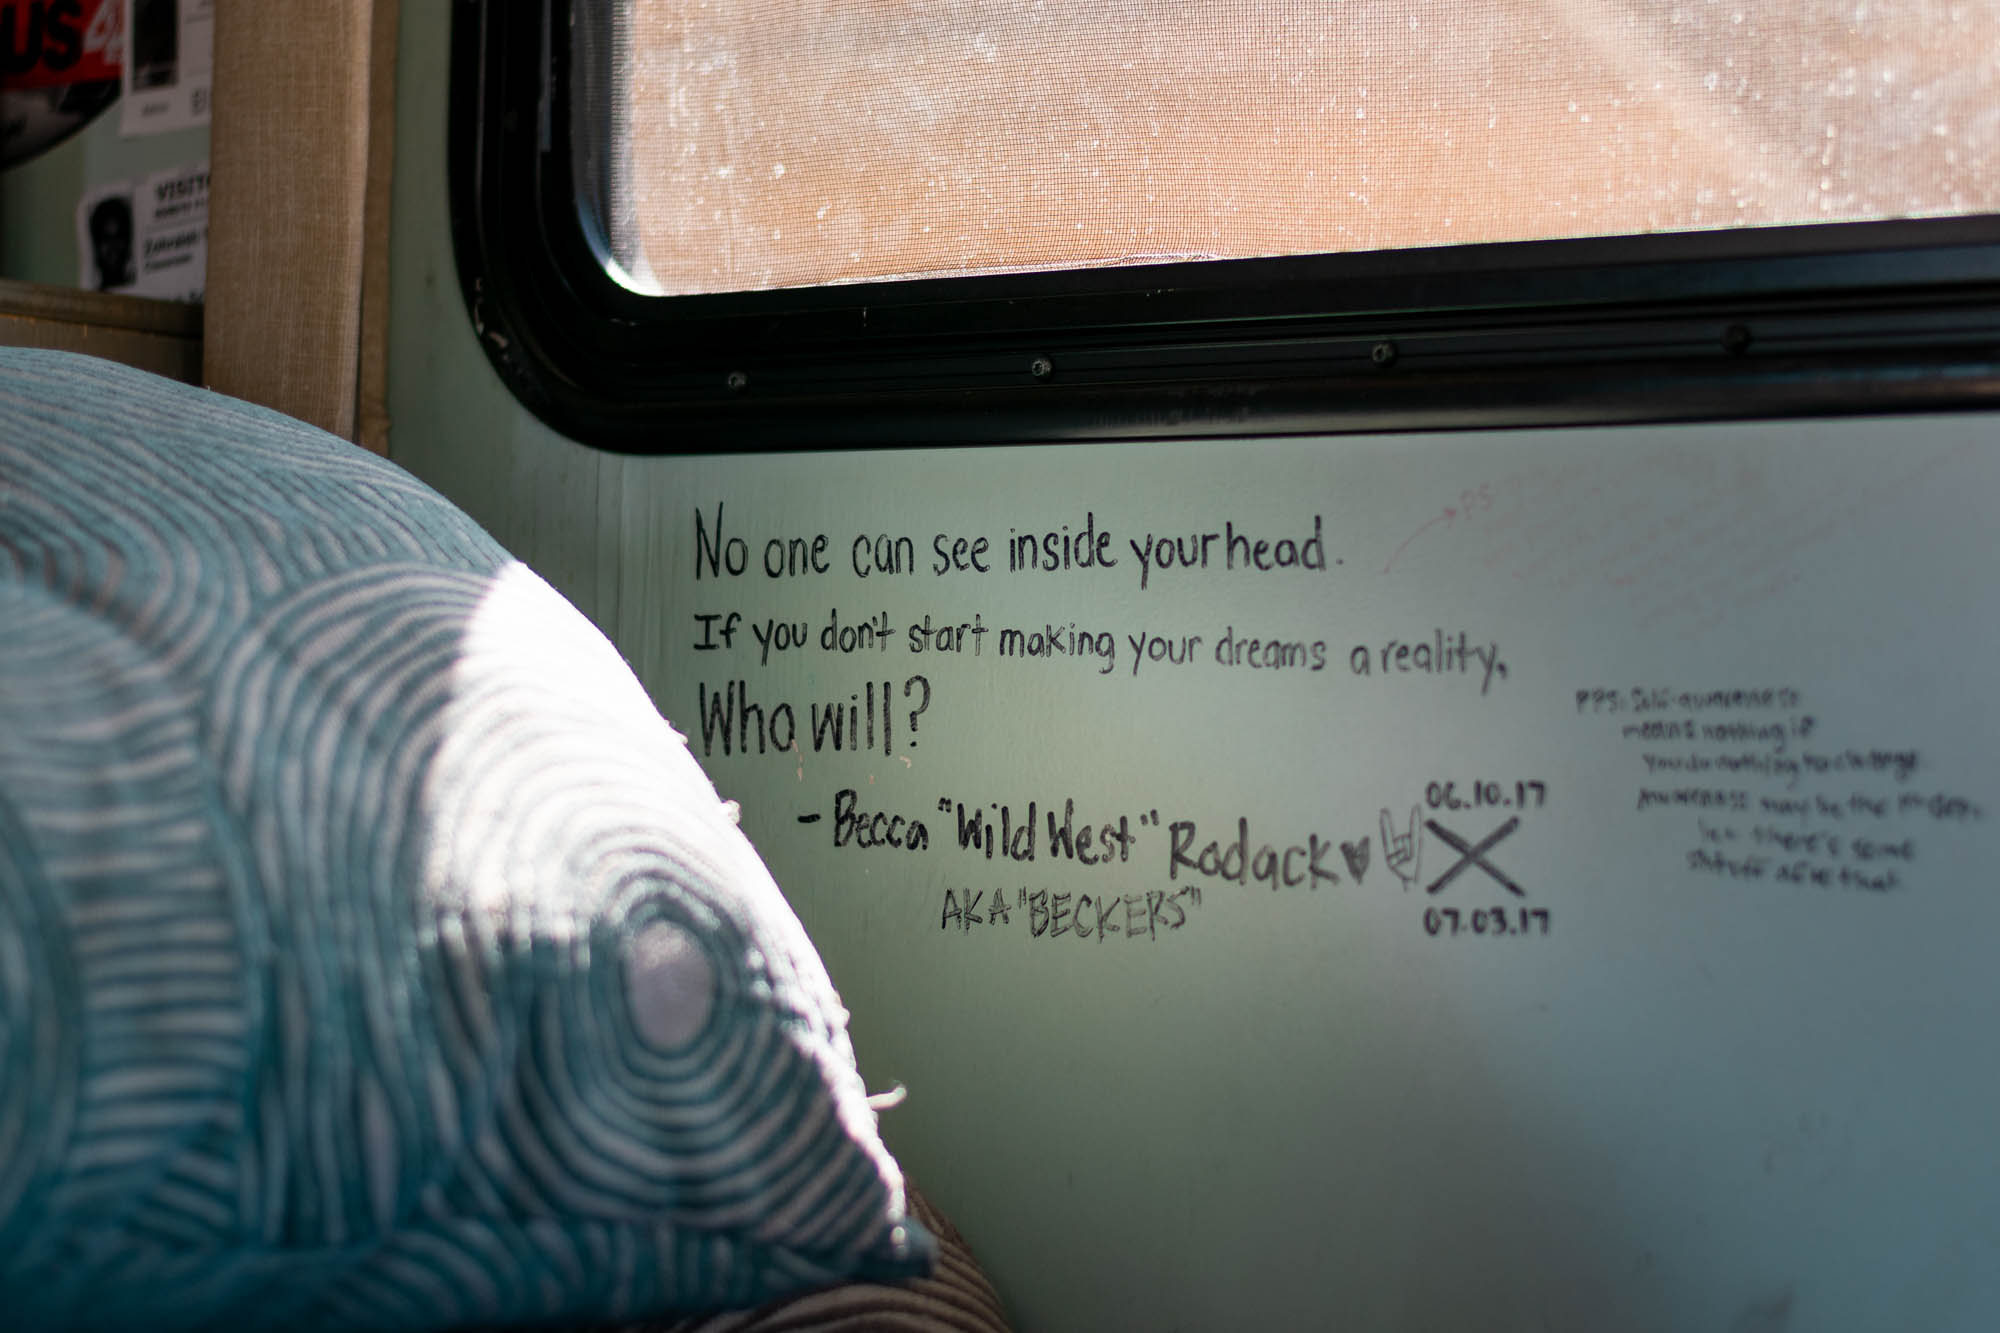 US4
VISIT
No one can see inside your head.
If you don't start making your dreams a reality,
Who will?
- Becca "Wild West" Rodack
AKA "BECKERS"
06.10.17
07.03.17
PS:
PPS: Self-awareness
means nothing if
you do nothing to change.
Awareness may be the 1st step,
but there's some
after that.